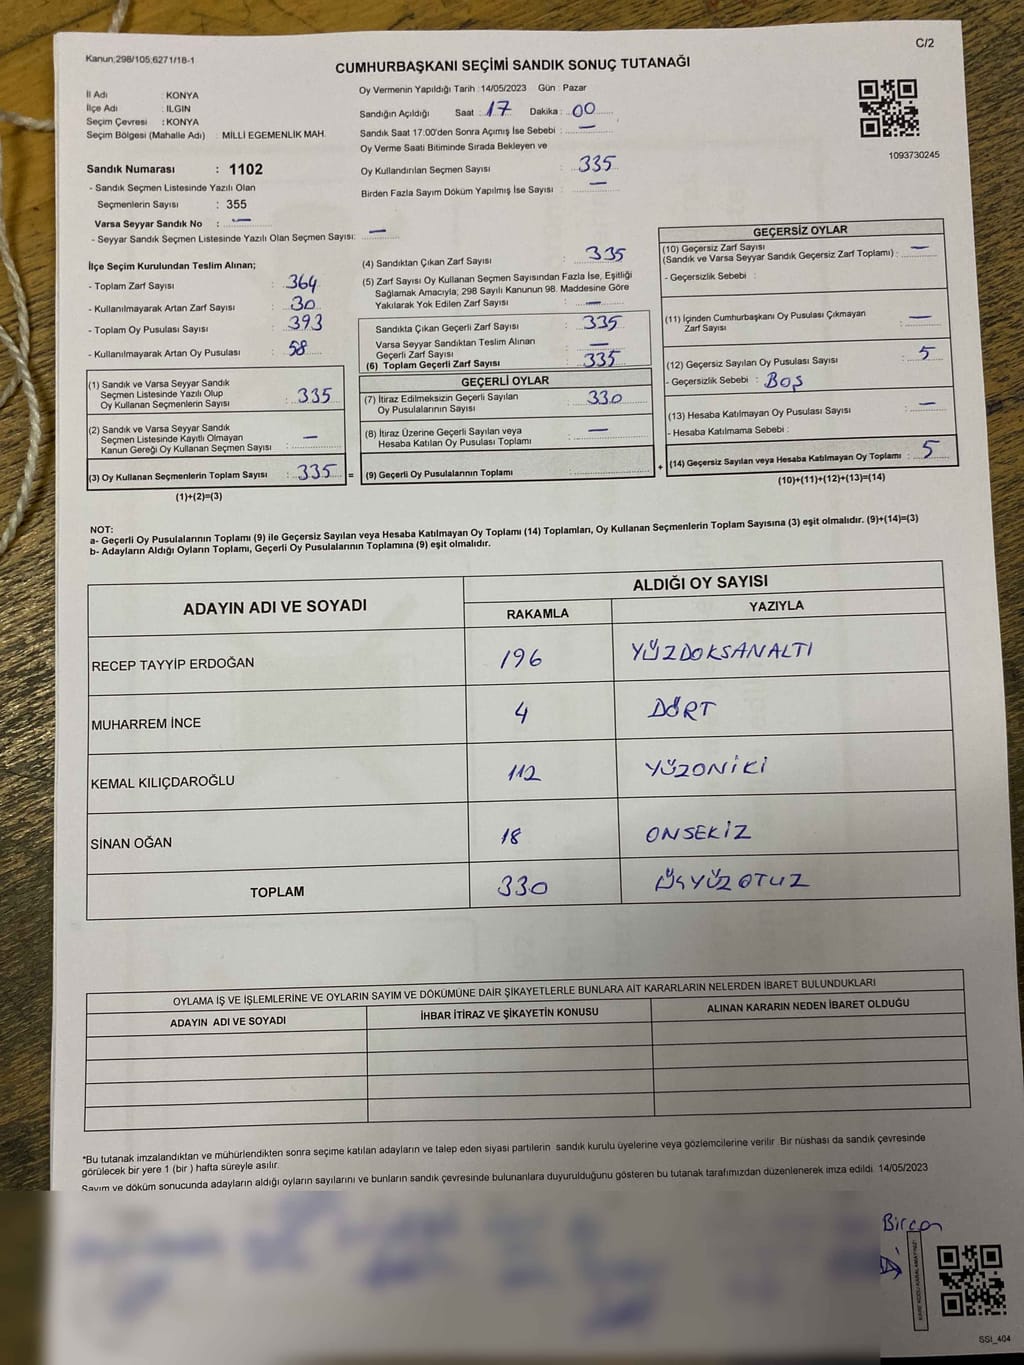 Kanun;298/105,6271/18-1
C/2
CUMHURBAŞKANI SEÇİMİ SANDIK SONUÇ TUTANAĞI
İl Adı : KONYA
İlçe Adı : ILGIN
Seçim Çevresi : KONYA
Seçim Bölgesi (Mahalle Adı) : MİLLİ EGEMENLİK MAH.
Sandık Numarası : 1102
- Sandık Seçmen Listesinde Yazılı Olan
Seçmenlerin Sayısı : 355
Varsa Seyyar Sandık No : —
- Seyyar Sandık Seçmen Listesinde Yazılı Olan Seçmen Sayısı: —
Oy Vermenin Yapıldığı Tarih : 14/05/2023 Gün : Pazar
Sandığın Açıldığı Saat : 17 Dakika : 00
Sandık Saat 17.00'den Sonra Açımış İse Sebebi : —
Oy Verme Saati Bitiminde Sırada Bekleyen ve
Oy Kullandırılan Seçmen Sayısı : 335
Birden Fazla Sayım Döküm Yapılmış İse Sayısı : —
1093730245
İlçe Seçim Kurulundan Teslim Alınan;
- Toplam Zarf Sayısı : 364
- Kullanılmayarak Artan Zarf Sayısı : 30
- Toplam Oy Pusulası Sayısı : 393
- Kullanılmayarak Artan Oy Pusulası : 58
(1) Sandık ve Varsa Seyyar Sandık
Seçmen Listesinde Yazılı Olup
Oy Kullanan Seçmenlerin Sayısı : 335
(2) Sandık ve Varsa Seyyar Sandık
Seçmen Listesinde Kayıtlı Olmayan
Kanun Gereği Oy Kullanan Seçmen Sayısı : —
(3) Oy Kullanan Seçmenlerin Toplam Sayısı : 335 =
(1)+(2)=(3)
(4) Sandıktan Çıkan Zarf Sayısı : 335
(5) Zarf Sayısı Oy Kullanan Seçmen Sayısından Fazla İse, Eşitliği
Sağlamak Amacıyla; 298 Sayılı Kanunun 98. Maddesine Göre
Yakılarak Yok Edilen Zarf Sayısı : —
Sandıkta Çıkan Geçerli Zarf Sayısı : 335
Varsa Seyyar Sandıktan Teslim Alınan
Geçerli Zarf Sayısı : —
(6) Toplam Geçerli Zarf Sayısı : 335
GEÇERLİ OYLAR
(7) İtiraz Edilmeksizin Geçerli Sayılan
Oy Pusulalarının Sayısı : 330
(8) İtiraz Üzerine Geçerli Sayılan veya
Hesaba Katılan Oy Pusulası Toplamı : —
(9) Geçerli Oy Pusulalarının Toplamı : +
GEÇERSİZ OYLAR
(10) Geçersiz Zarf Sayısı
(Sandık ve Varsa Seyyar Sandık Geçersiz Zarf Toplamı) : —
- Geçersizlik Sebebi :
(11) İçinden Cumhurbaşkanı Oy Pusulası Çıkmayan
Zarf Sayısı : —
(12) Geçersiz Sayılan Oy Pusulası Sayısı : 5
- Geçersizlik Sebebi : Boş
(13) Hesaba Katılmayan Oy Pusulası Sayısı : —
- Hesaba Katılmama Sebebi :
(14) Geçersiz Sayılan veya Hesaba Katılmayan Oy Toplamı : 5
(10)+(11)+(12)+(13)=(14)
NOT:
a- Geçerli Oy Pusulalarının Toplamı (9) ile Geçersiz Sayılan veya Hesaba Katılmayan Oy Toplamı (14) Toplamları, Oy Kullanan Seçmenlerin Toplam Sayısına (3) eşit olmalıdır. (9)+(14)=(3)
b- Adayların Aldığı Oyların Toplamı, Geçerli Oy Pusulalarının Toplamına (9) eşit olmalıdır.
ADAYIN ADI VE SOYADI
ALDIĞI OY SAYISI
RAKAMLA YAZIYLA
RECEP TAYYİP ERDOĞAN 196 YÜZDOKSANALTI
MUHARREM İNCE 4 DÖRT
KEMAL KILIÇDAROĞLU 112 YÜZONİKİ
SİNAN OĞAN 18 ONSEKİZ
TOPLAM 330 ÜÇYÜZOTUZ
OYLAMA İŞ VE İŞLEMLERİNE VE OYLARIN SAYIM VE DÖKÜMÜNE DAİR ŞİKAYETLERLE BUNLARA AİT KARARLARIN NELERDEN İBARET BULUNDUKLARI
ADAYIN ADI VE SOYADI İHBAR İTİRAZ VE ŞİKAYETİN KONUSU ALINAN KARARIN NEDEN İBARET OLDUĞU
*Bu tutanak imzalandıktan ve mühürlendikten sonra seçime katılan adayların ve talep eden siyasi partilerin sandık kurulu üyelerine veya gözlemcilerine verilir. Bir nüshası da sandık çevresinde
görülecek bir yere 1 (bir ) hafta süreyle asılır.
Sayım ve döküm sonucunda adayların aldığı oyların sayılarını ve bunların sandık çevresinde bulunanlara duyurulduğunu gösteren bu tutanak tarafımızdan düzenlenerek imza edildi. 14/05/2023
SSI_404